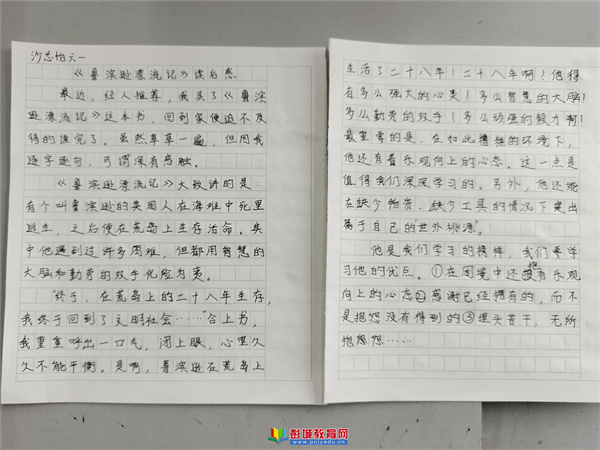 沙芯怡六一
《鲁滨逊漂流记》读后感
最近，经人推荐，我买了《鲁滨
逊漂流记》这本书，回到家便迫不及
待的读完了。虽然草草一遍，但因我
逐字逐句，可谓深有感触。
《鲁滨逊漂流记》大致讲的是：
有个叫鲁滨逊的英国人在海难中死里
逃生，之后便在荒岛上生存活命。其
中他遇到过许多困难，但都用智慧的
大脑和勤劳的双手化险为夷。
“终于，在荒岛上的二十八年生存，
我终于回到了文明社会……”合上书，
我重重呼出一口气，闭上眼，心里久
久不能平衡。是啊，鲁滨逊在荒岛上
生活了二十八年！二十八年啊！他得
有多么强大的心灵！多么智慧的大脑！
多么勤劳的双手！多么顽强的毅力啊！
最重要的是，在如此糟糕的环境下，
他还有着乐观向上的心态。这一点是
值得我们深深学习的。另外，他还能
在缺少物资、缺少工具的情况下建出
属于自己的“世外桃源。”
他是我们学习的榜样，我们要学
习他的优点。①在困境中还抱有乐观
向上的心态②感谢已经拥有的，而不
是抱怨没有得到的③埋头苦干，无所
抱怨……
彭城教育网
www.pcjyedu.cn